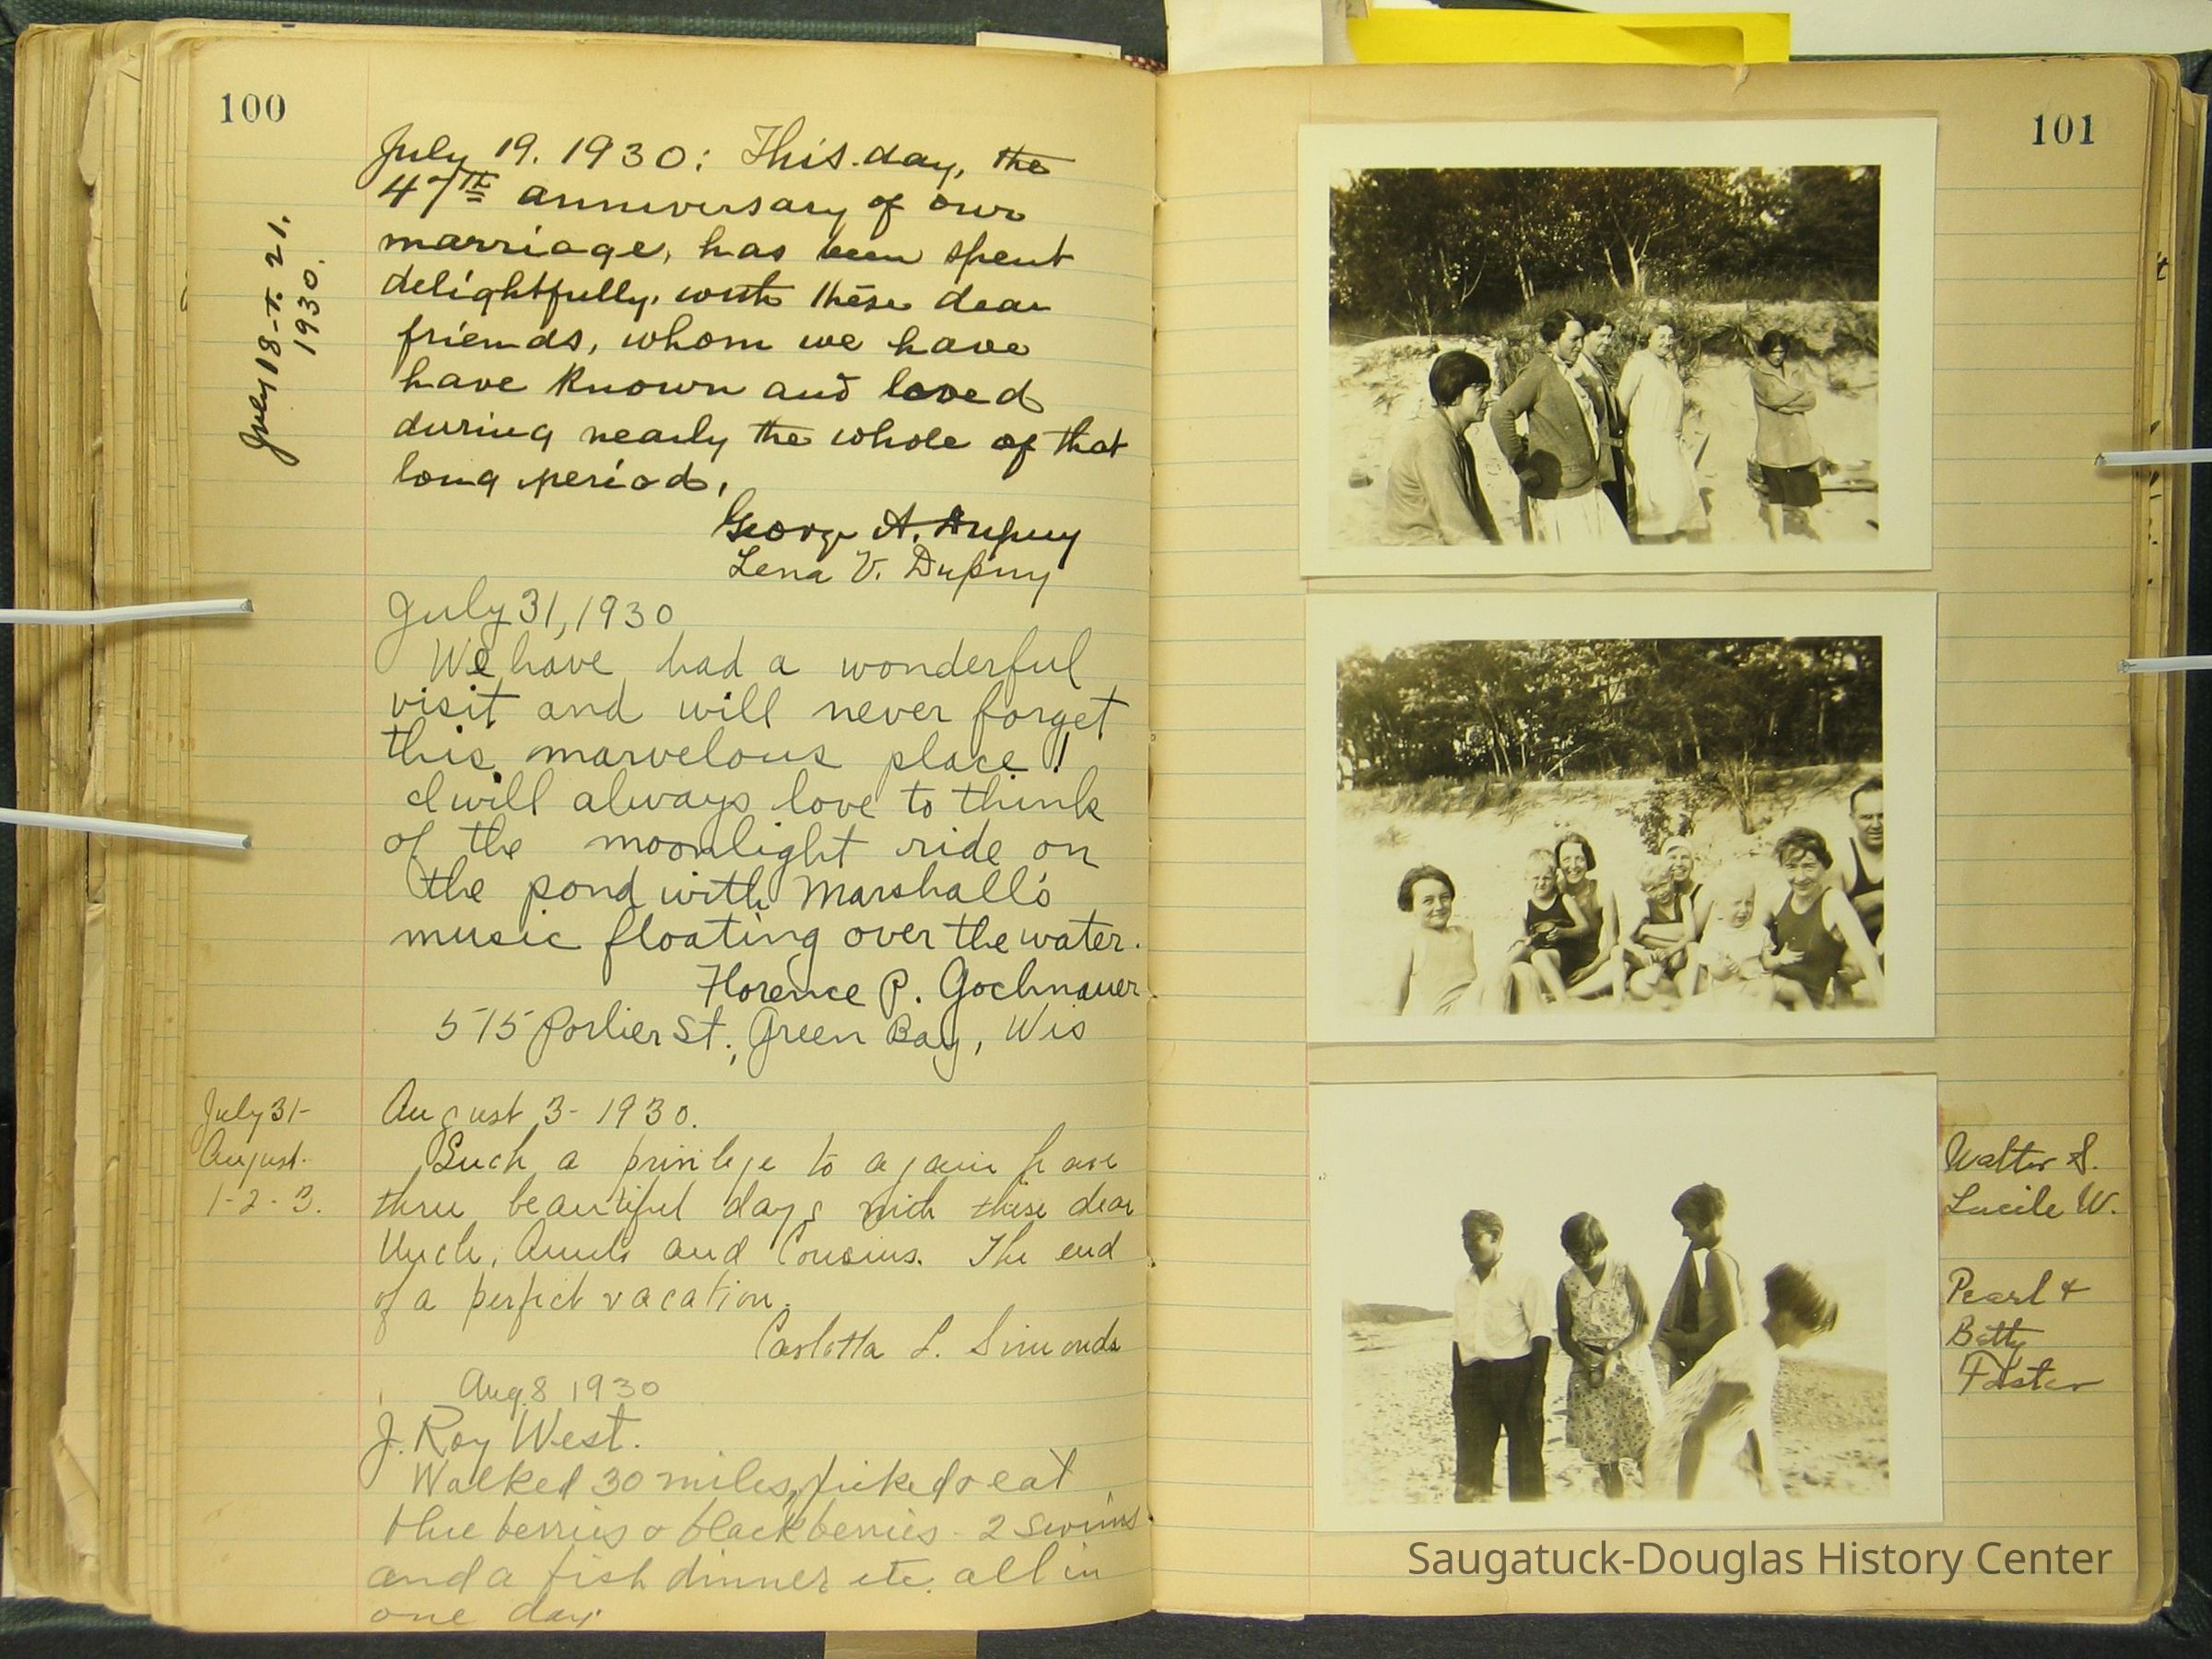 100
July 18-T. 21.
1930.
July 19. 1930: This day, the
47th anniversary of our
marriage, has been spent
delightfully, with these dear
friends, whom we have
have known and loved
during nearly the whole of that
long period.
George A. Dupuy
Lena V. Dupuy
July 31, 1930
We have had a wonderful
visit and will never forget
this marvelous place!
I will always love to think
of the moonlight ride on
the pond with Marshall's
music floating over the water.
Florence P. Gochnauer
515 Porlier St., Green Bay, Wis
July 31-
August.
1-2-3.
August 3-1930.
Such a privilege to again have
three beautiful days with these dear
Uncle, Aunts and Cousins. The end
of a perfect vacation.
Carlotta L. Simonds
Aug 8 1930
J. Roy West.
Walked 30 miles, picked & eat
blue berries & blackberries - 2 swims
and a fish dinner etc. all in
one day.
101
Walter S.
Lucile W.
Pearl &
Betty
Foster
Saugatuck-Douglas History Center